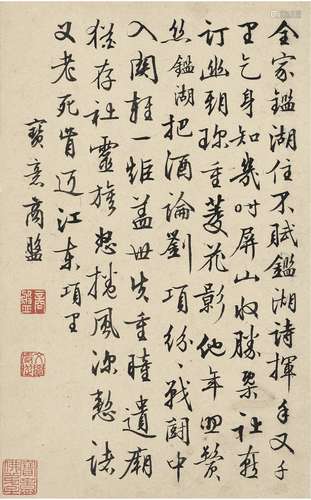 全家鑑湖住不賦鑑湖詩揮手又千
里乞身知幾時屏山收勝槩社
訂幽期珍重菱花影他年照鬢
絲鑑湖把酒論劉項紛紛戰鬪中
入關輕一炬蓋世失重瞳遺廟
猶存社靈旗怒捲風深慙諸
父老死肯過江東項里
寶意商盤